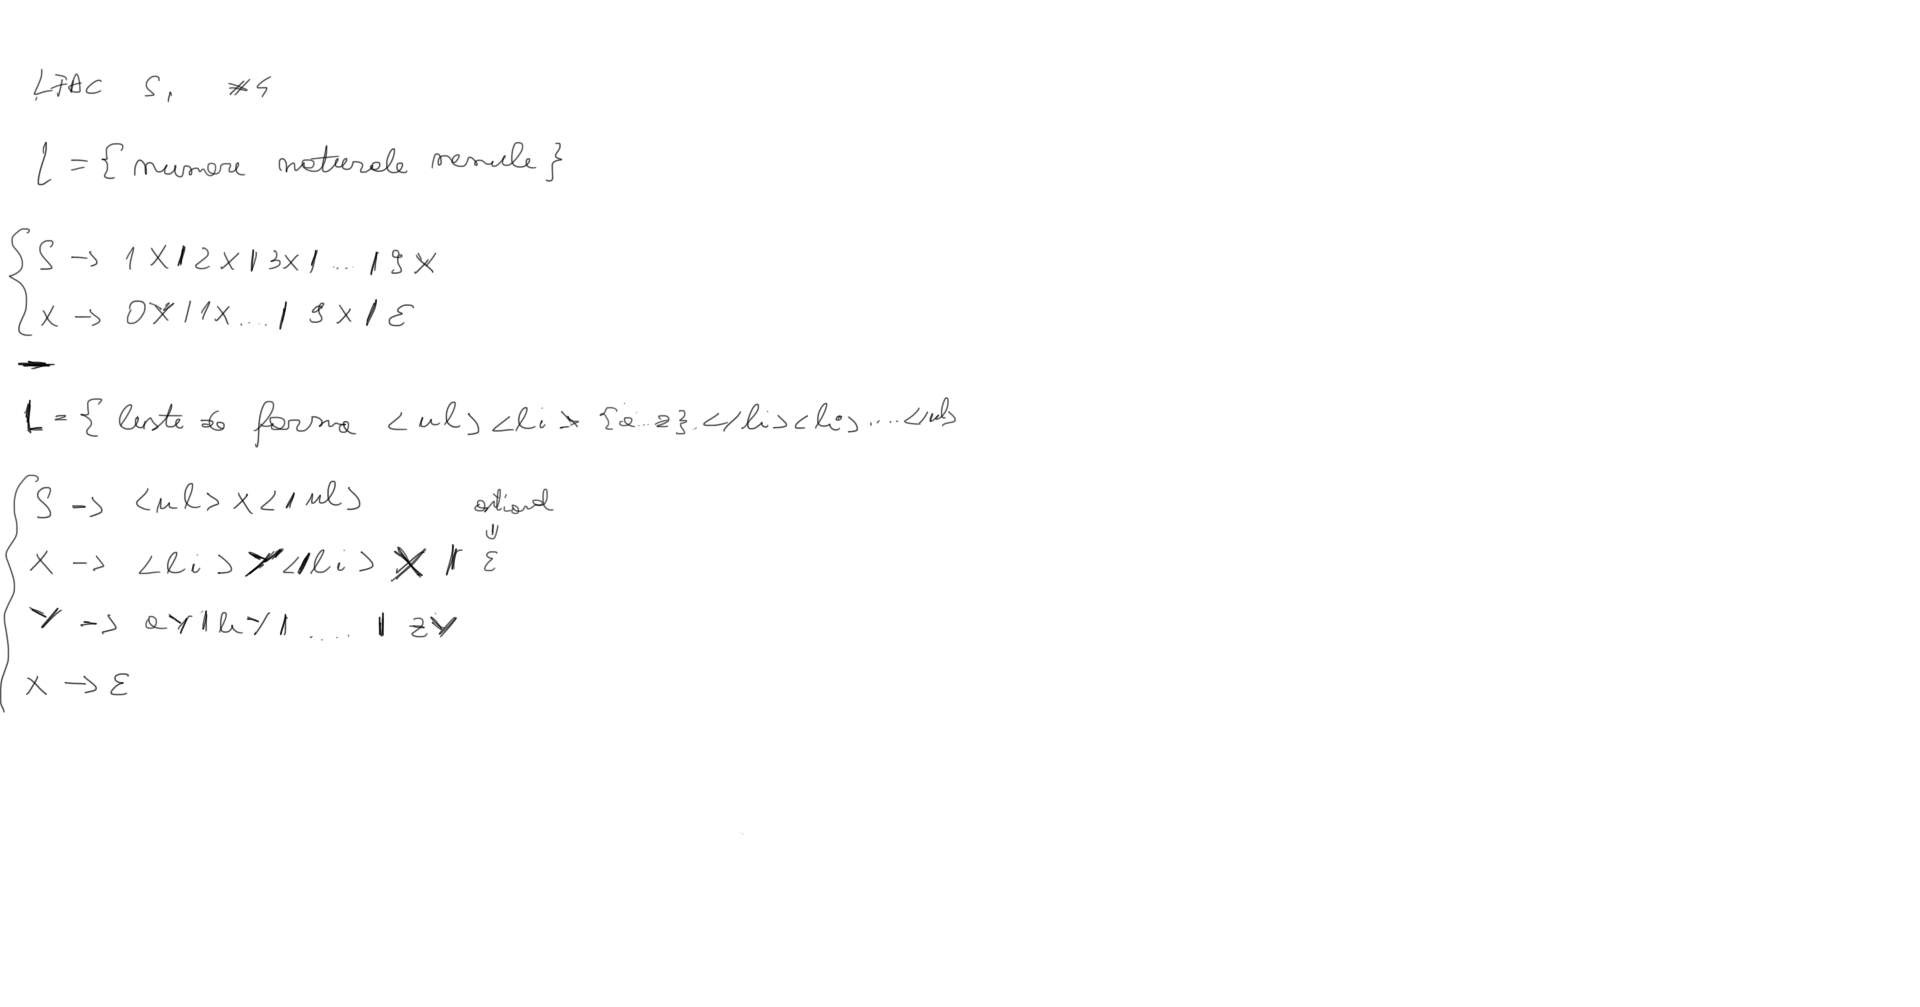 LFAC S1 #5
L = { numere naturale nenule }
S -> 1X | 2X | 3X | ... | 9X
X -> 0X | 1X .... | 9X | ε
L = { liste de forma <ul><li> {a...z} </li><li>....</ul>
S -> <ul>X</ul>
optional
X -> <li>Y</li> X | ε
Y -> aY | bY | .... | zY
X -> ε